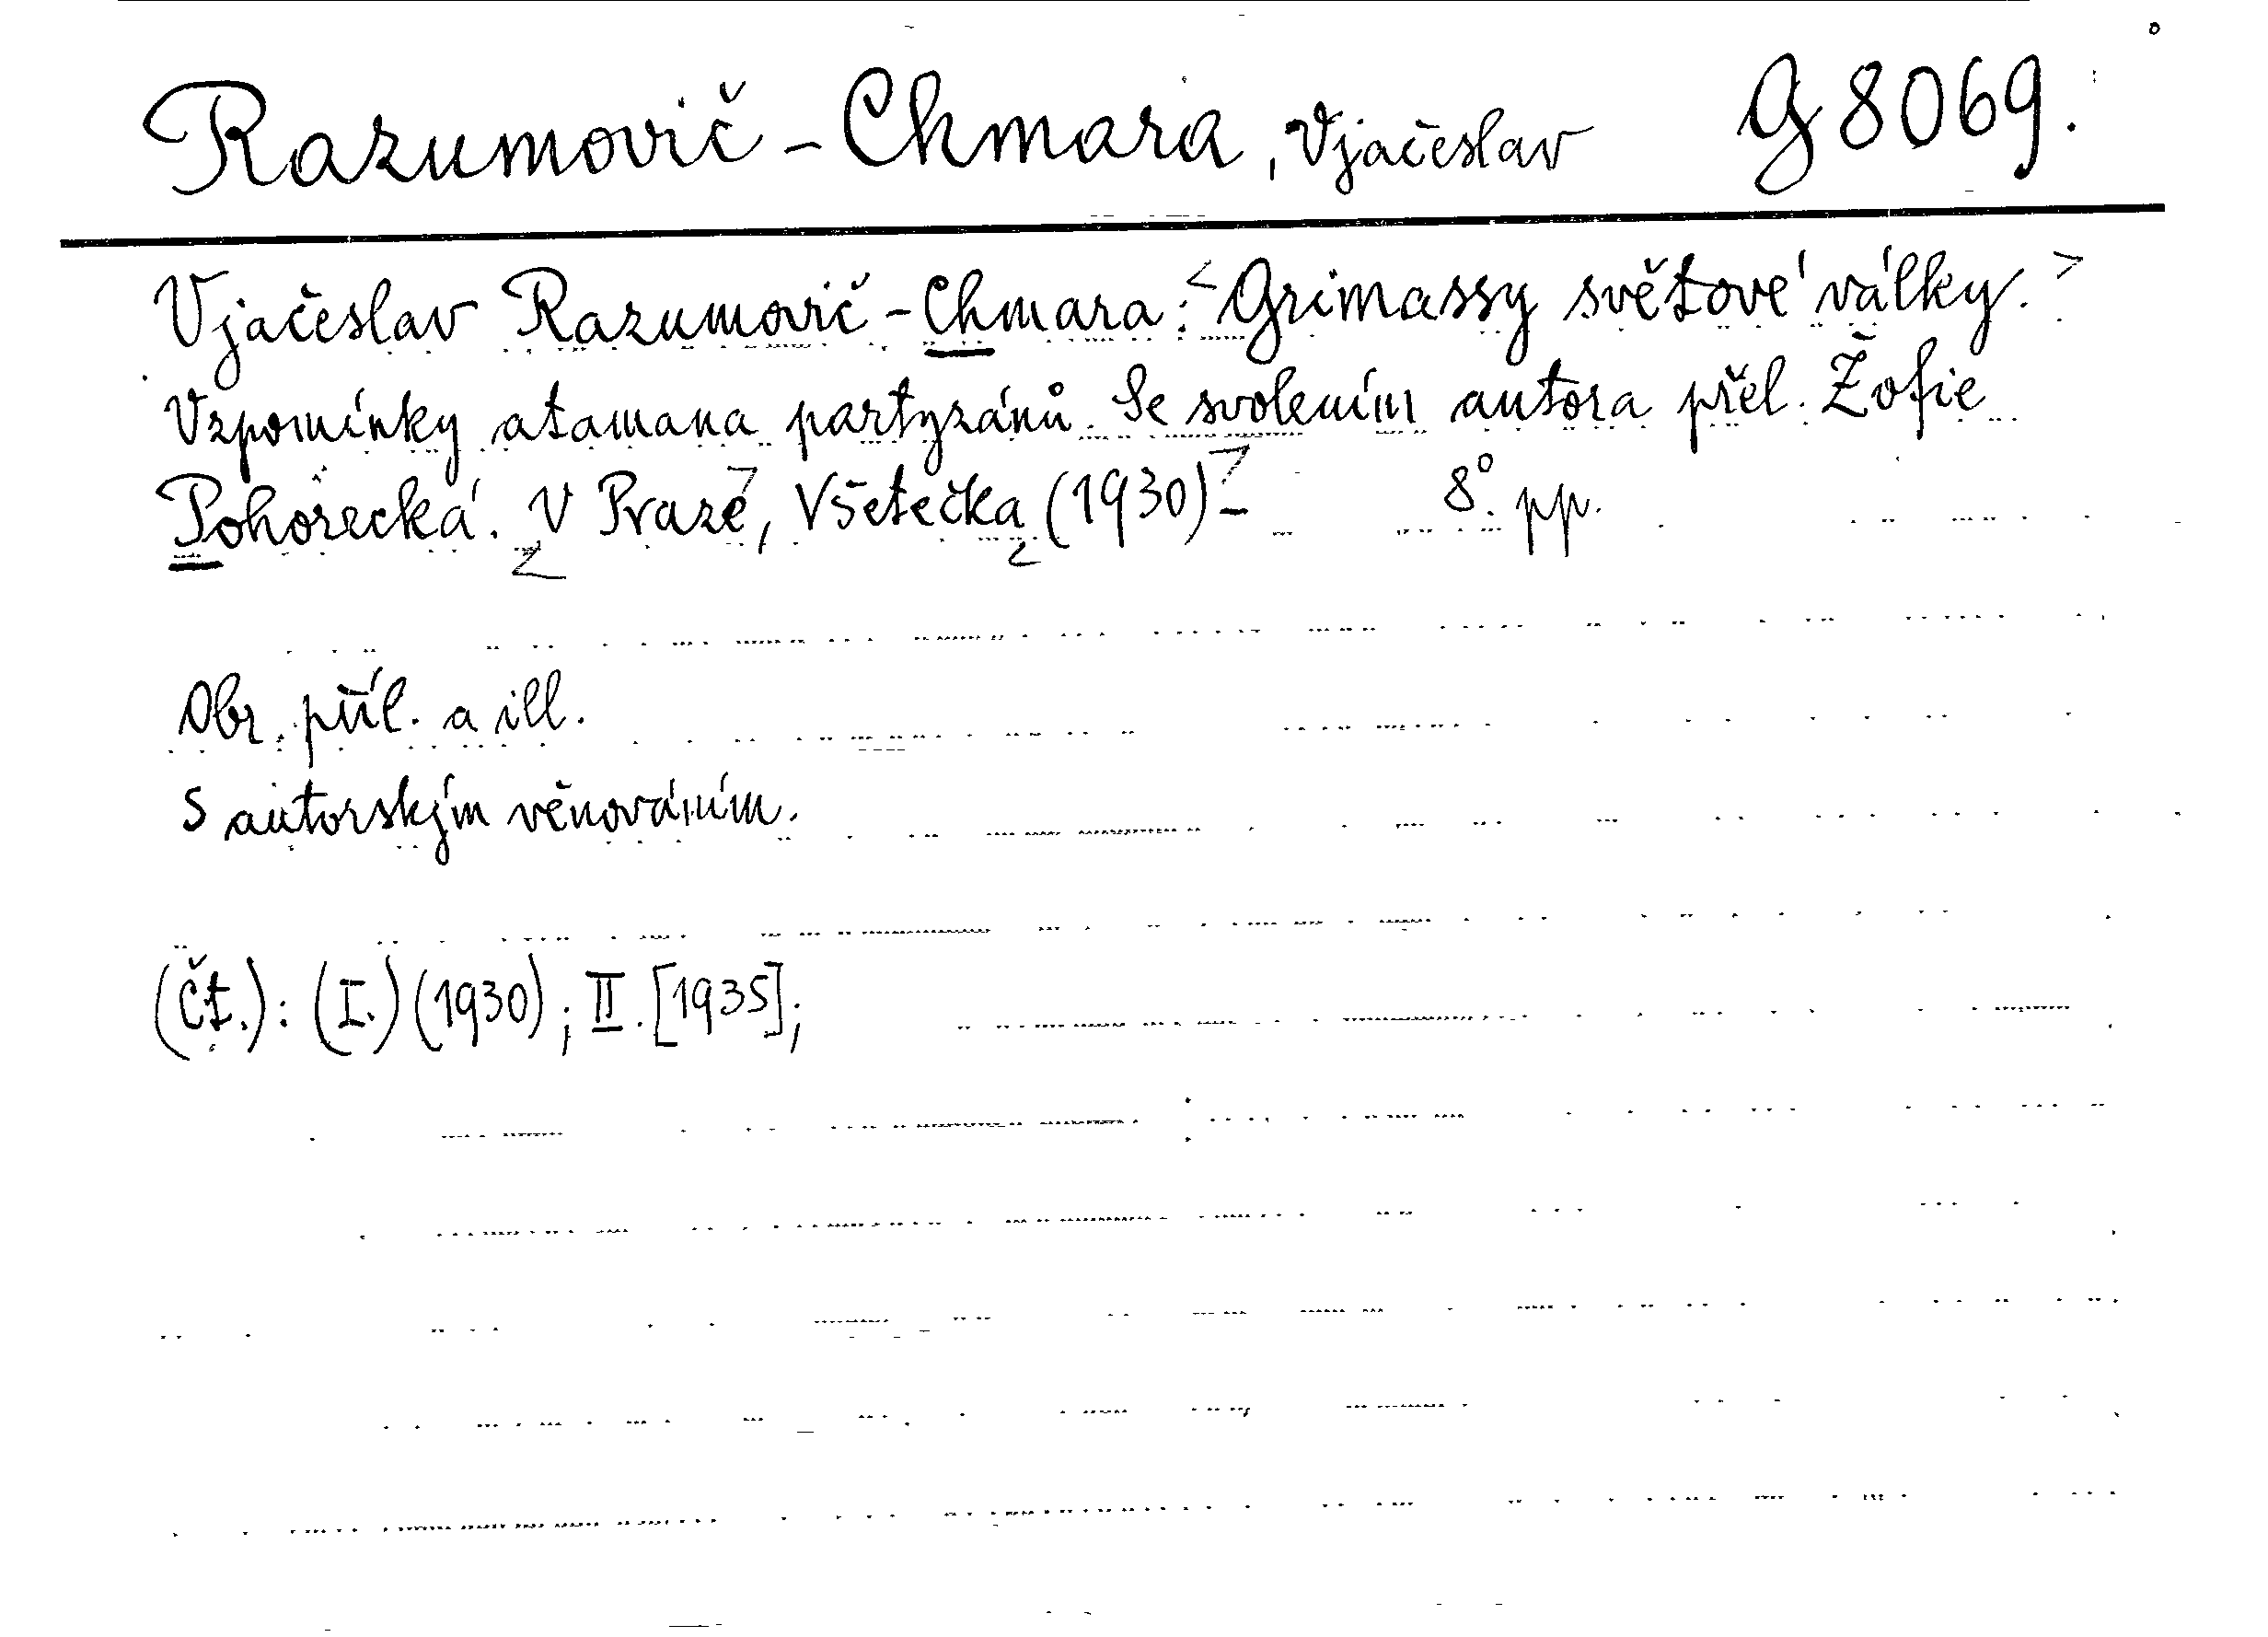 Razumovič-Chmara, Vjačeslav G 8069.
Vjačeslav Razumovič-Chmara: <Grimassy světové války.>
Vzpomínky atamana partyzánů. Se svolením autora přel. Žofie
Pohorecká. V Praze, Všetečka (1930)- 8°. pp.
Obr. příl. a ill.
S autorským věnováním.
(Čt.): (I.) (1930); II. [1935];